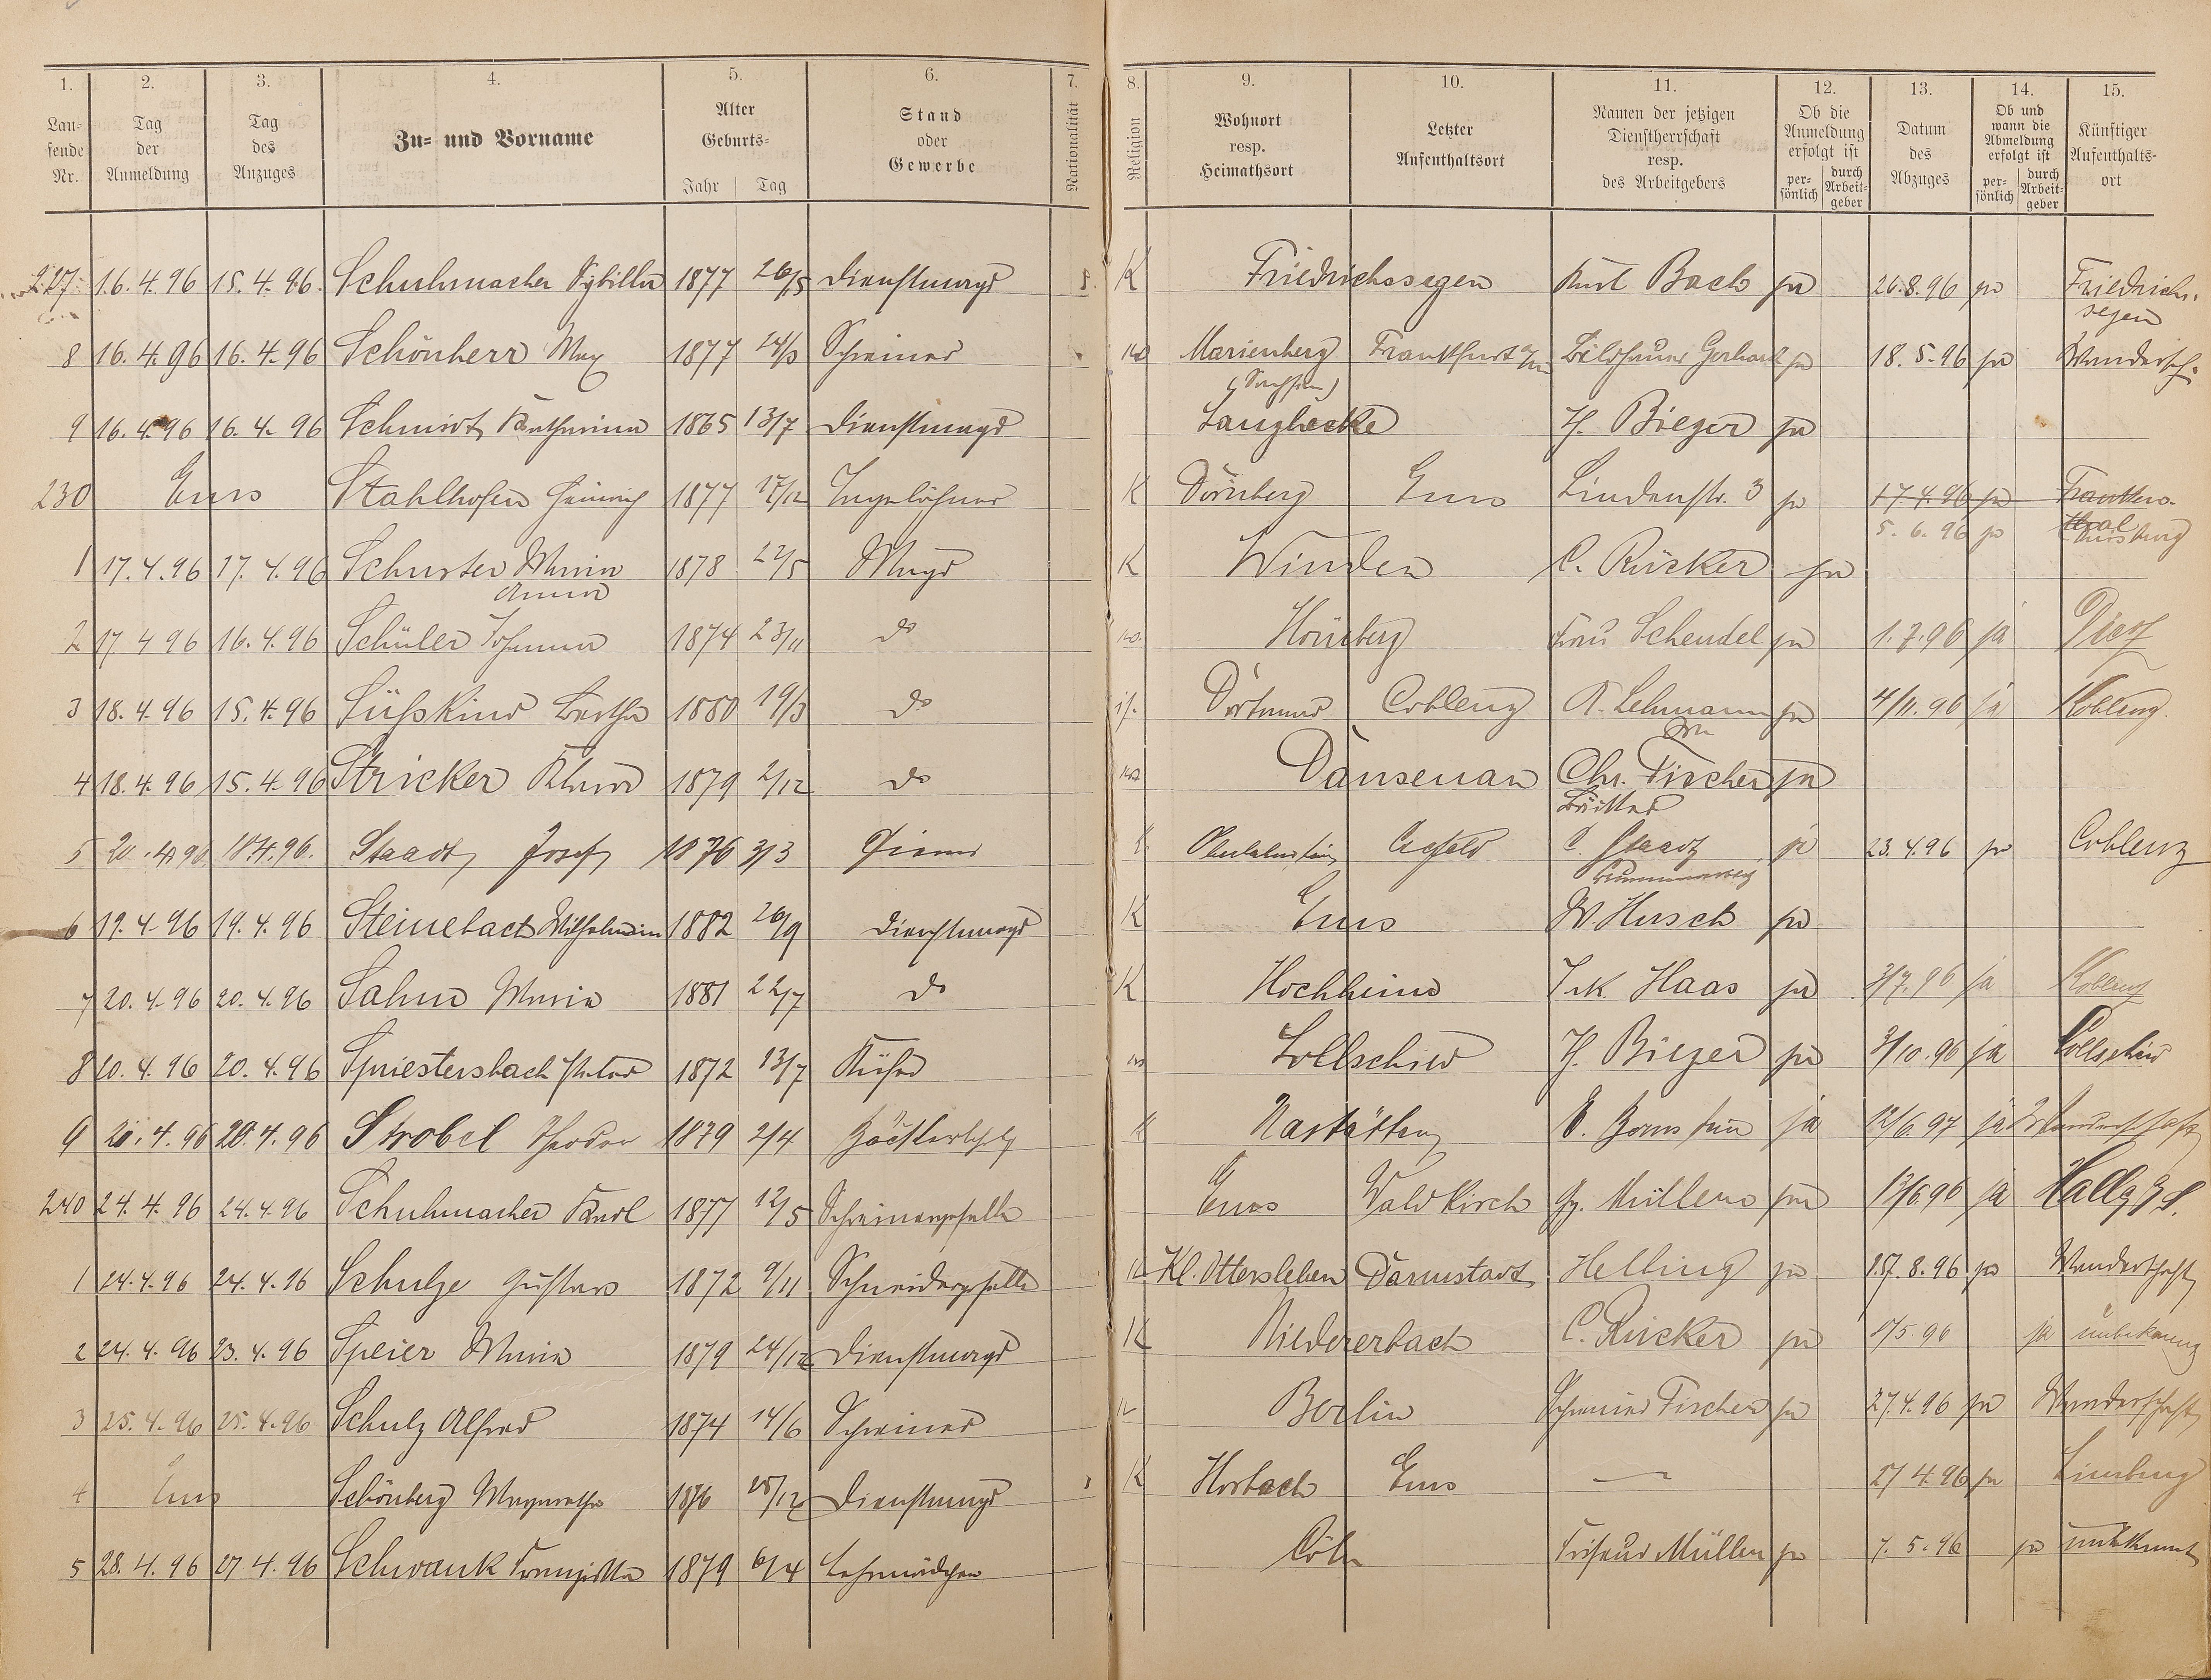 1. 2. 3. 4. 5. 6. 7. 8. 9. 10. 11. 12. 13. 14. 15.
Lau-fende Nr. | Tag der Anmeldung | Tag des Anzuges | Zu- und Vorname | Alter Geburts- Jahr Tag | Stand oder Gewerbe | Nationalität | Religion | Wohnort resp. Heimathsort | Letzter Aufenthaltsort | Namen der jetzigen Dienstherrschaft resp. des Arbeitgebers | Ob die Anmeldung erfolgt ist per-sönlich durch Arbeit-geber | Datum des Abzuges | Ob und wann die Abmeldung erfolgt ist per-sönlich durch Arbeit-geber | Künftiger Aufenthalts-ort
227 16.4.96 15.4.96. Schuhmacher Sybilla 1877 26/5 Dienstmagd K Friedrichssegen Karl Bach ja 26.8.96 ja Friedrichs-
segen
8 16.4.96 16.4.96 Schönherr Max 1877 24/3 Schreiner Marienberg Frankfurt a/M Bildhauer Gerhardt ja 18.5.96 ja Wandersch.
(Sachsen)
9 16.4.96 16.4.96 Schmidt Katharina 1865 13/7 Dienstmagd Langhecke H. Bieger ja
230 Ems Stahlhofen Heinrich 1877 17/12 Tagelöhner K Dörnberg Ems Lindenstr. 3 ja 17.4.96 ja
5.6.96 ja
1 17.4.96 17.4.96 Schuster Maria 1878 22/5 Magd K Winden C. Rücker ja
Anna
2 17 4 96 16.4.96 Schüler Johanna 1874 23/11 do Frau Schendel ja 1.7.96 ja Diez
3 18.4.96 15.4.96 Süßkind Bertha 1880 19/3 do is. Dortmund Coblenz R. Lehmann ja 4/11.96 ja Koblenz.
4 18.4.96 15.4.96 Stricker Klara 1879 2/12 do Dausenau Chr. Fischer ja
5 20.4.96 18.4.96. Staadt Josef 1876 3/3 K Oberlahnstein C. Staadt ja 23.4.96 ja Coblenz
6 19.4.96 19.4.96 Steinebach Wilhelmine 1882 26/9 Dienstmagd K Ems W. Husch ja
7 20.4.96 20.4.96 Sahm Maria 1881 22/7 do K Hochheim Is. Haas ja 3/7.96 ja Koblenz
8 20.4.96 20.4.96 Spriestersbach Peter 1872 13/7 Küfer Lollschied H. Bieger ja 3/10.96 ja Lollschied
9 20.4.96 20.4.96 Strobel Theodor 1879 2/4 K Nastätten ja 12/6.97 ja Wanderschaft
240 24.4.96 24.4.96 Schuhmacher Karl 1877 12/5 Schreinergeselle Ems Waldkirch Gg. Müller ja 13/6.96 ja Halle a/S.
1 24.4.96 24.4.96 Schulze Gustav 1872 9/11 Schneidergeselle Kl. Ottersleben Darmstadt Helbing ja 15.8.96 ja Wanderschaft
2 24.4.96 23.4.96 Speier Maria 1879 24/12 Dienstmagd K Niedererbach C. Rücker ja 1/5.96 ja unbekannt
3 25.4.96 25.4.96 Schulz Alfred 1874 14/6 Schreiner Berlin Schreiner Fischer ja 27.4.96 ja Wanderschaft
4 Ems Schönberg Margaretha 1876 25/12 Dienstmagd K Horbach Ems — 27 4.96 ja Limburg
5 28.4.96 27 4.96 Schwank Franziska 1879 6/4 Lehrmädchen Cöln Friseur Müller ja 7.5.96 ja unbekannt